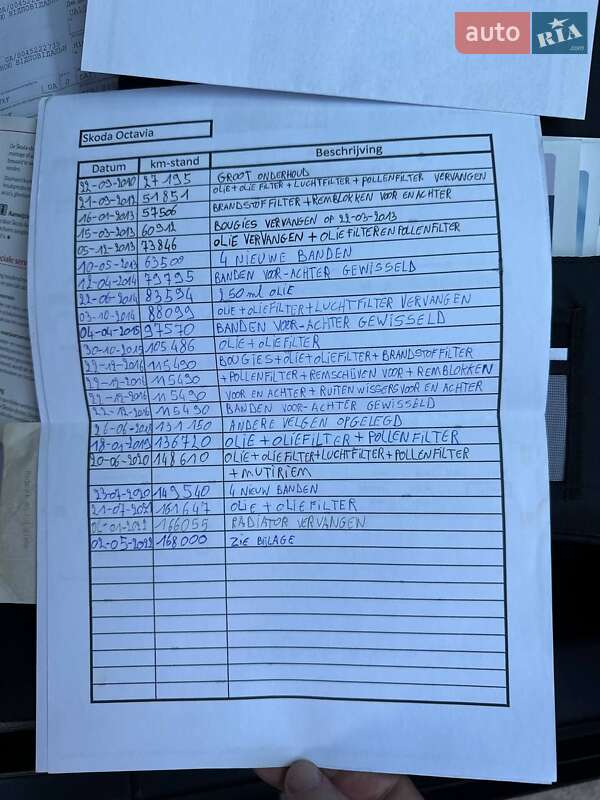 auto RIA .com
CA/0045222735
Skoda Octavia
Datum km-stand Beschrijving
22-09-2010 27195 GROOT ONDERHOUD
21-09-2012 51851 OLIE+OLIE FILTER+LUCHTFILTER+POLLENFILTER VERVANGEN
16-01-2013 57506 BRANDSTOFFILTER+REMBLOKKEN VOOR EN ACHTER
15-03-2013 60912 BOUGIES VERVANGEN OP 22-03-2013
05-12-2013 73846 OLIE VERVANGEN + OLIEFILTER EN POLLENFILTER
10-05-2013 63500 4 NIEUWE BANDEN
12-04-2014 79795 BANDEN VOOR-ACHTER GEWISSELD
22-06-2014 83594 250 ml OLIE
03-10-2014 88099 OLIE+OLIEFILTER+LUCHTFILTER VERVANGEN
04-04-2015 97570 BANDEN VOOR-ACHTER GEWISSELD
30-10-2015 105.486 OLIE+OLIEFILTER
22-12-2016 115490 BOUGIES+OLIE+OLIEFILTER+BRANDSTOFFILTER
22-12-2016 115490 +POLLENFILTER+REMSCHIJVEN VOOR+REMBLOKKEN
22-12-2016 115490 VOOR EN ACHTER+RUITENWISSERS VOOR EN ACHTER
22-12-2016 115490 BANDEN VOOR-ACHTER GEWISSELD
131150 ANDERE VELGEN OPGELEGD
18-01-2019 136720 OLIE+OLIEFILTER+POLLENFILTER
20-06-2020 148610 OLIE+OLIEFILTER+LUCHTFILTER+POLLENFILTER
+ MUTIRIEM
23-07-2020 149540 4 NIEUW BANDEN
21-07-2021 161647 OLIE+OLIEFILTER
166055 RADIATOR VERVANGEN
02-05-2022 168000 ZIE BIJLAGE